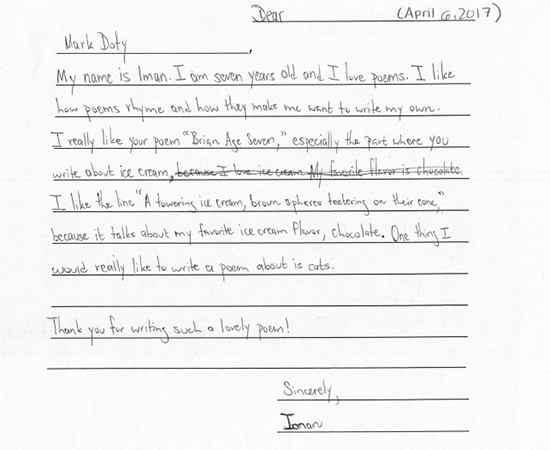 Dear (April 6, 2017)
Mark Doty,
My name is Iman. I am seven years old and I love poems. I like
how poems rhyme and how they make me want to write my own.
I really like your poem "Brian Age Seven," especially the part where you
write about ice cream, because I love ice cream My favorite flavor is chocolate.
I like the line "A towering ice cream, brown spheres teetering on their cone,"
because it talks about my favorite ice cream flavor, chocolate. One thing I
would really like to write a poem about is cats.
Thank you for writing such a lovely poem!
Sincerely,
Iman